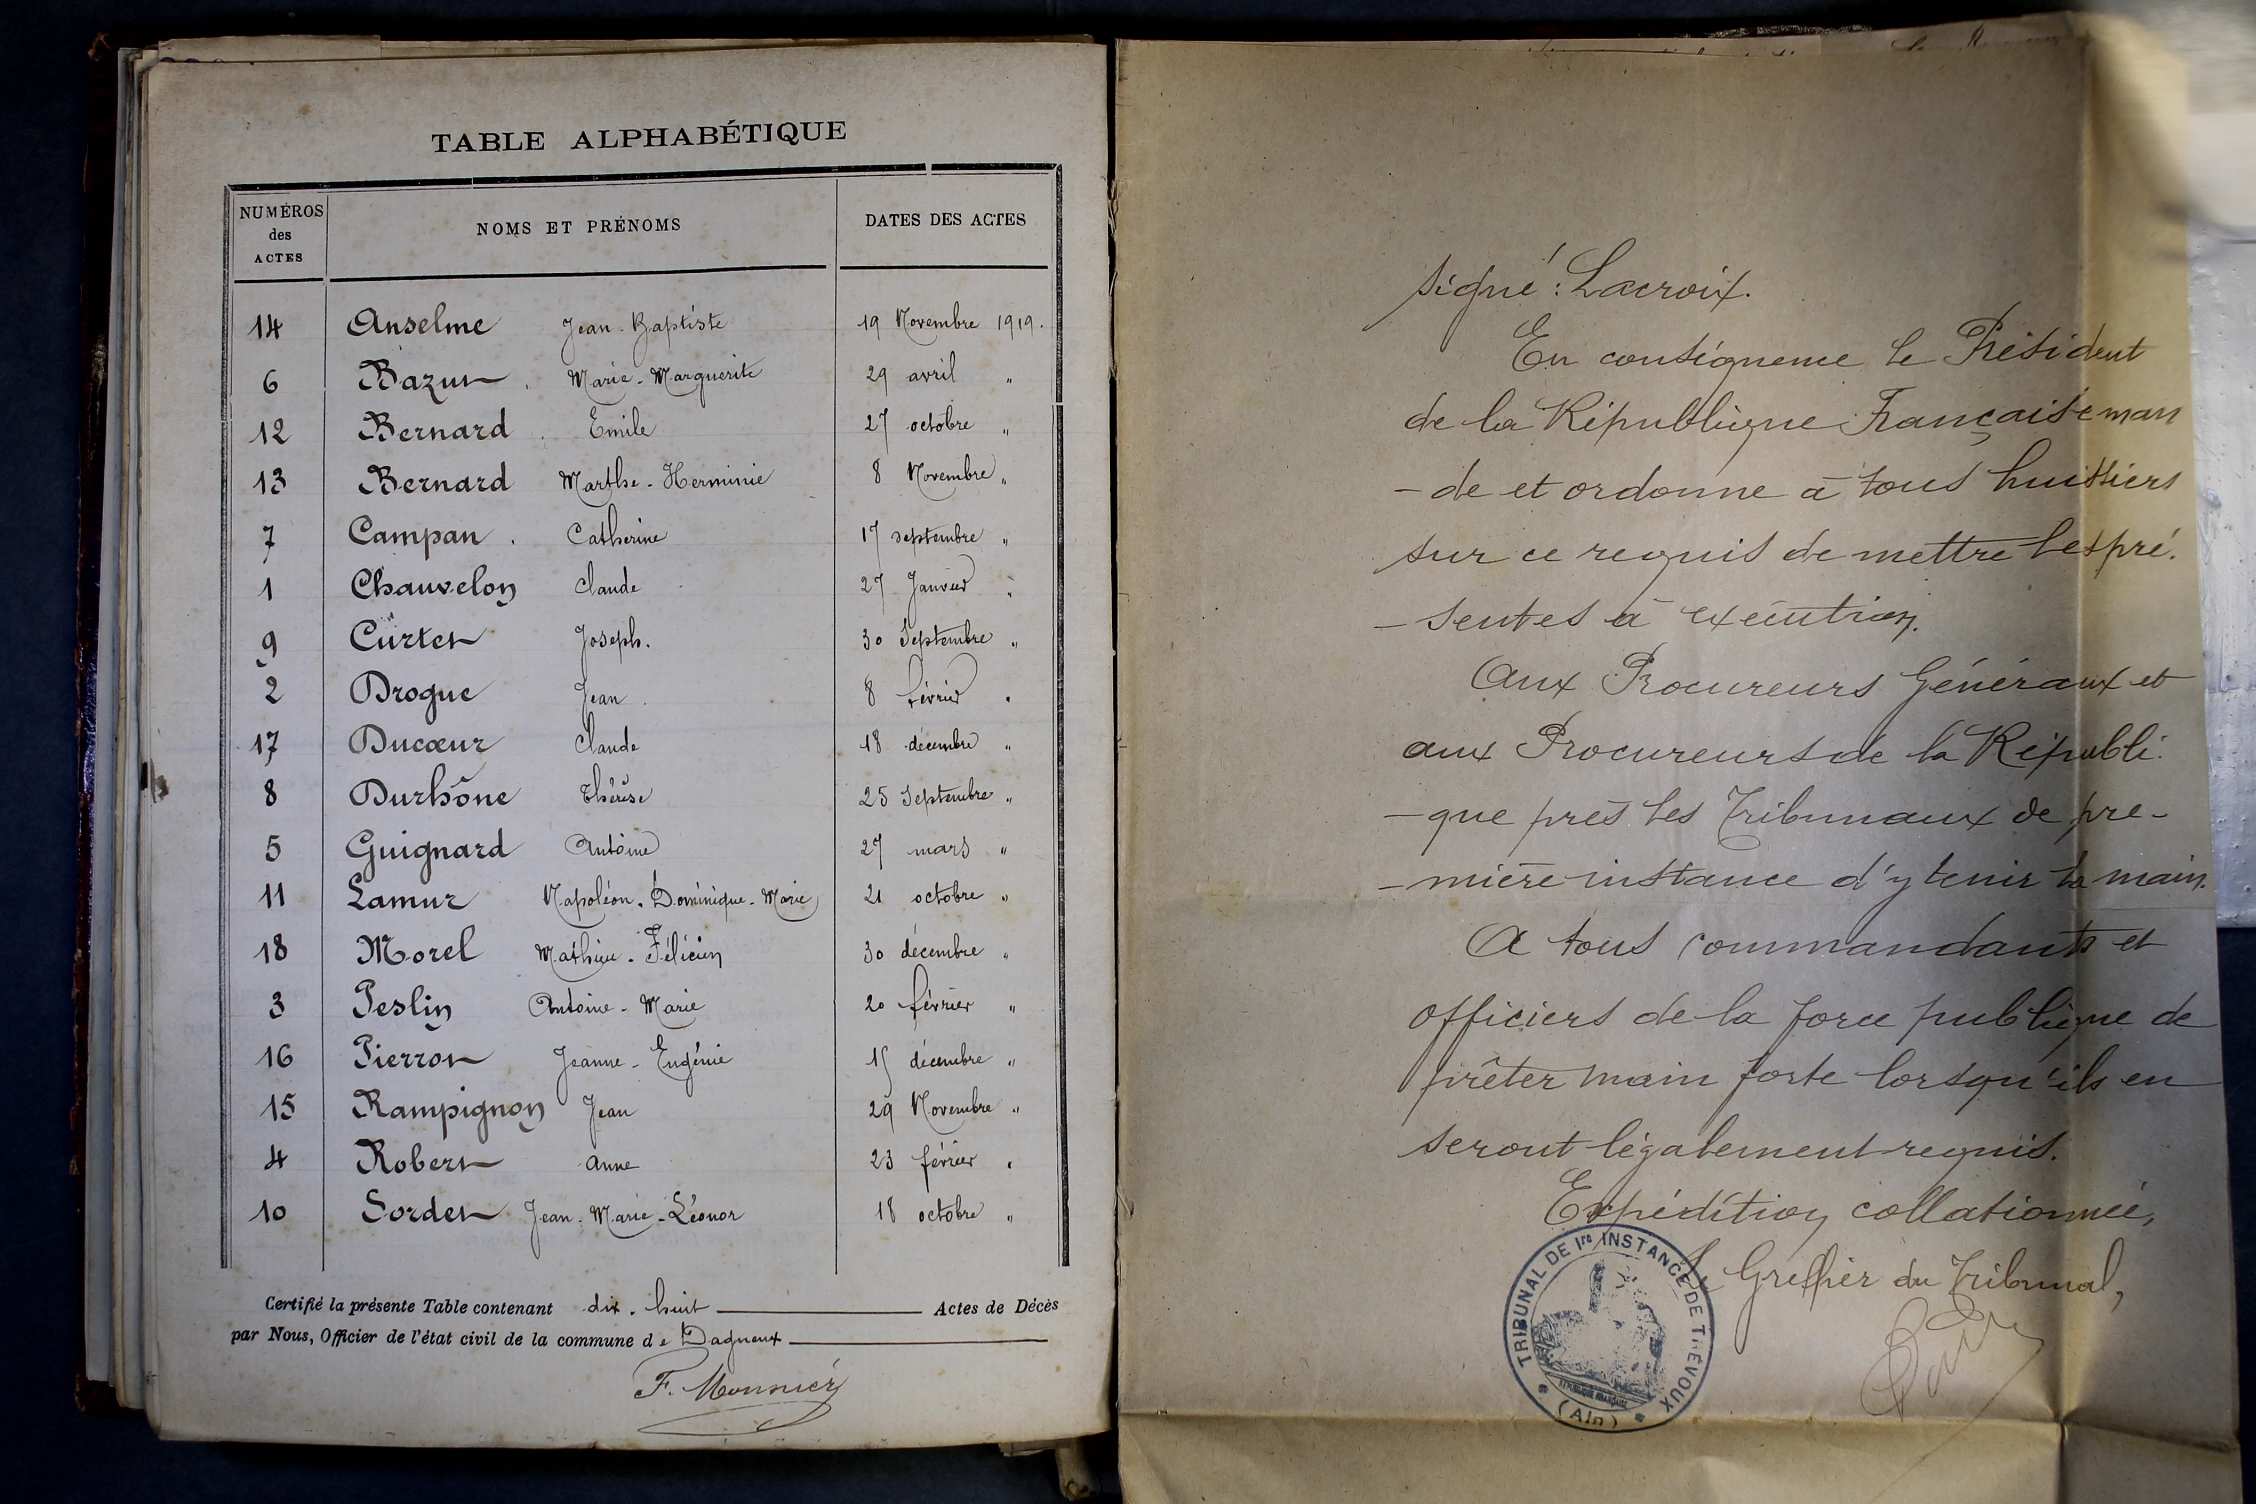 TABLE ALPHABÉTIQUE
NUMÉROS des ACTES NOMS ET PRÉNOMS DATES DES ACTES
14 Anselme Jean-Baptiste 19 Novembre 1919.
6 Bazun Marie-Marguerite 29 avril "
12 Bernard Emile 27 octobre "
13 Bernard Marthe-Herminie 8 Novembre "
7 Campan Catherine 17 septembre "
1 Chauvelon Claude 27 Janvier "
9 Curtet Joseph. 30 Septembre "
2 Drogue Jean 8 février "
17 Ducœur Claude 18 décembre "
8 Durhône Thérèse 25 Septembre "
5 Guignard Antoine 27 mars "
11 Lamur Napoléon-Dominique-Marie 21 octobre "
18 Morel Mathieu-Félicien 30 décembre "
3 Peslin Antoine-Marie 20 février "
16 Pierron Jeanne-Eugénie 15 décembre "
15 Rampignon Jean 29 Novembre "
4 Robert Anne 23 février "
10 Sordet Jean-Marie-Léonor 18 octobre "
Certifié la présente Table contenant dix-huit Actes de Décès
par Nous, Officier de l'état civil de la commune de Dagneux
F. Monnier
signé : Lacroix.
En conséquence le Président
de la République Française man
-de et ordonne à tous huissiers
sur ce requis de mettre les pré-
-sentes à exécution.
Aux Procureurs Généraux et
aux Procureurs de la Républi-
-que près les Tribunaux de pre-
-mière instance d'y tenir la main.
A tous commandants et
officiers de la force publique de
prêter main forte lorsqu'ils en
seront légalement requis.
Expédition collationnée,
Le Greffier du Tribunal,
TRIBUNAL DE 1re INSTANCE DE TRÉVOUX
(Ain)